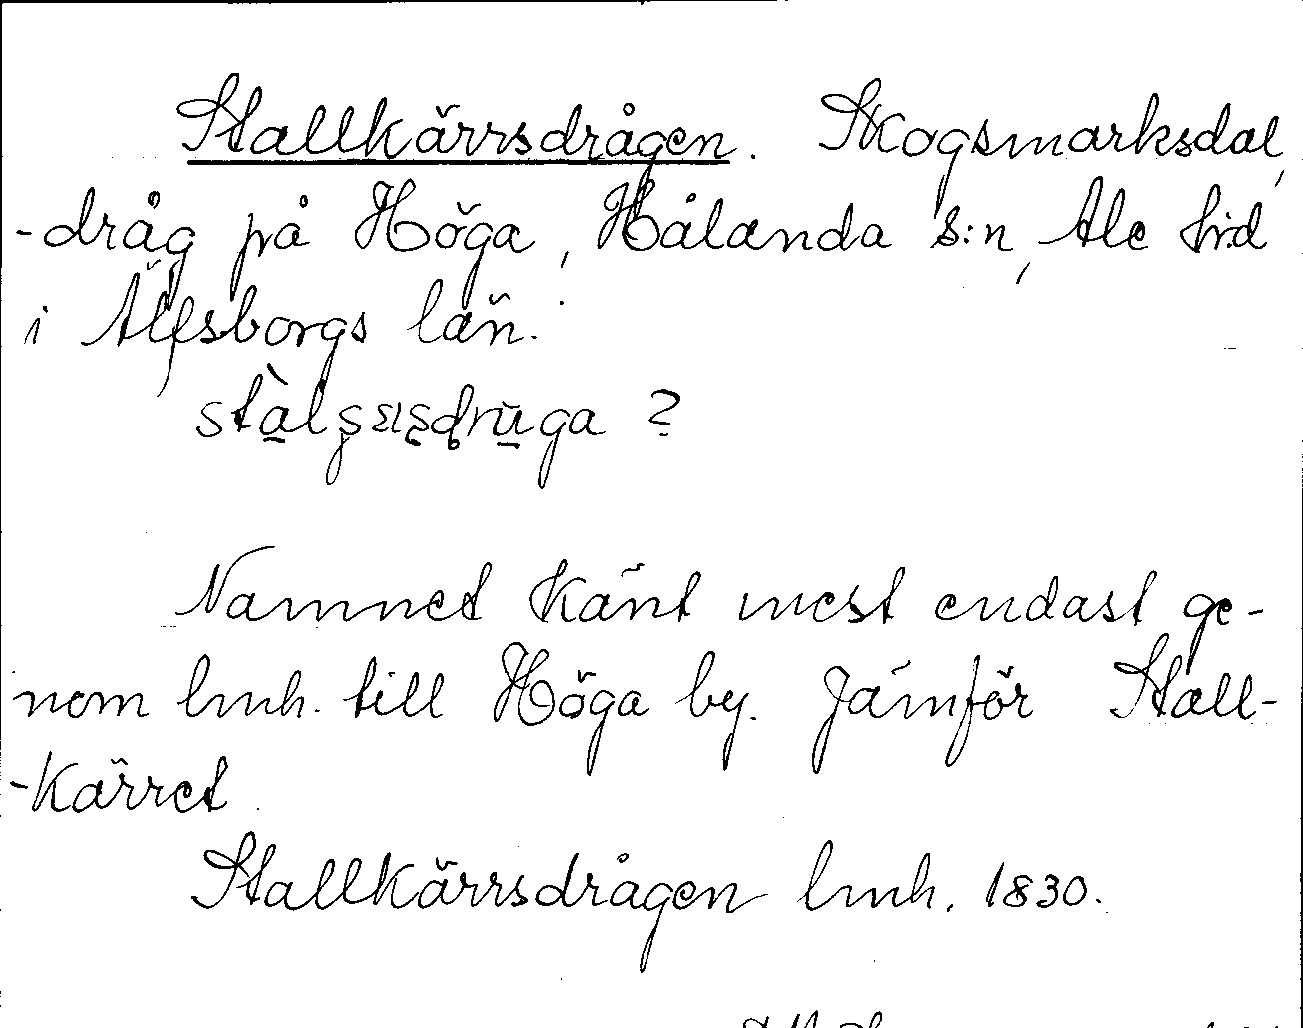 Stallkärrsdrågen. Skogsmarksdal,
-dråg på Höga, Hålanda s:n, Ale hrd
i Älfsborgs län.
Namnet känt mest endast ge-
nom lmh. till Höga by. Jämför Stall-
-kärret.
Stallkärrsdrågen lmh. 1830.